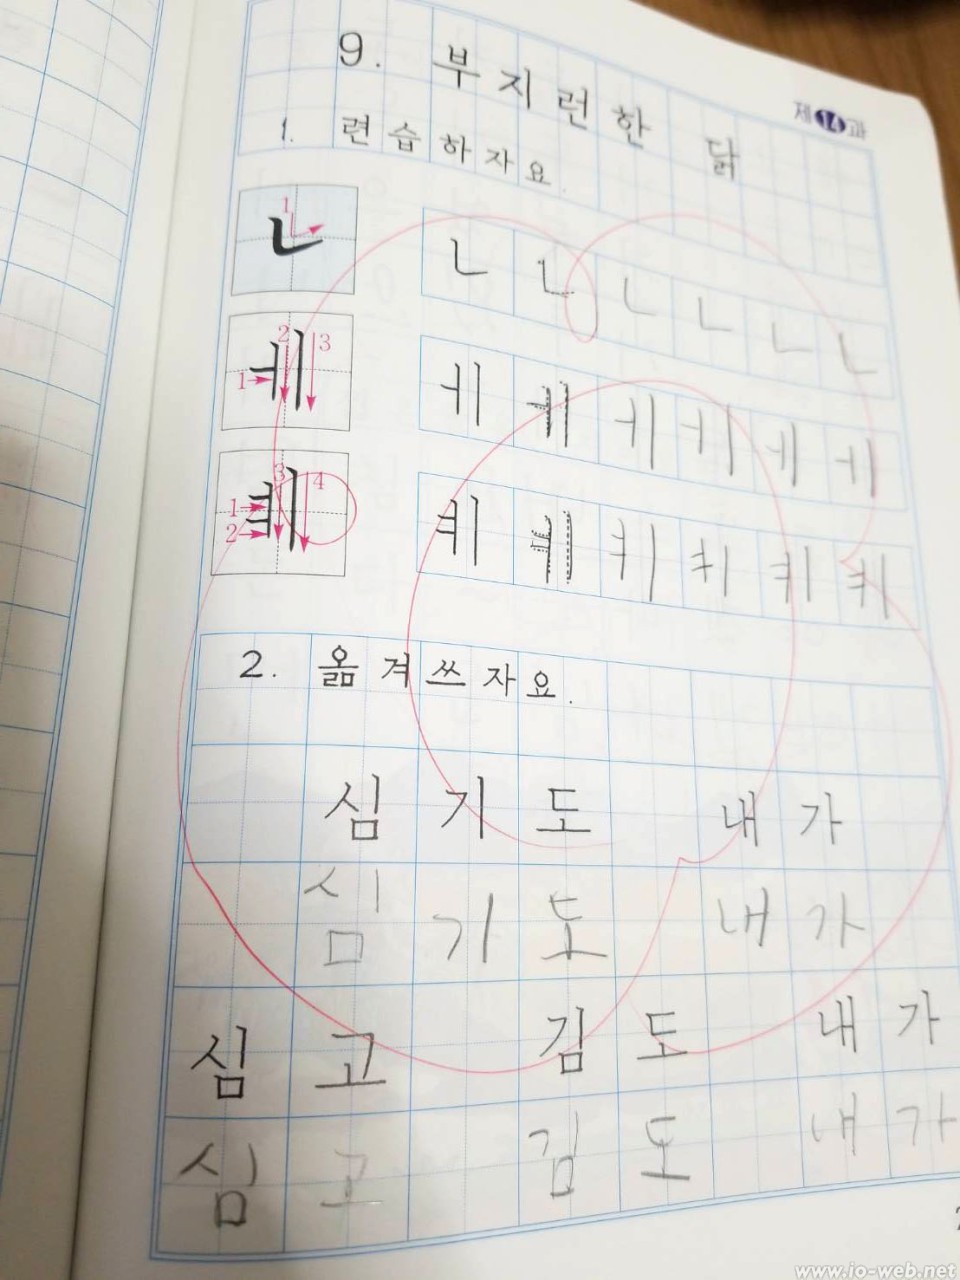 제14과
9. 부지런한 닭
1. 련습하자요.
1 ㄴ ㄴ ㄴ ㄴ ㄴ ㄴ ㄴ
1 2 3 ㅔ ㅔ ㅔ ㅔ ㅔ ㅔ ㅔ
1 2 3 4 ㅖ ㅖ ㅖ ㅖ ㅖ ㅖ ㅖ
2. 옮겨쓰자요.
심기도 내가
심기도 내가
심고 김도 내가
심고 김도 내가
www.io-web.net